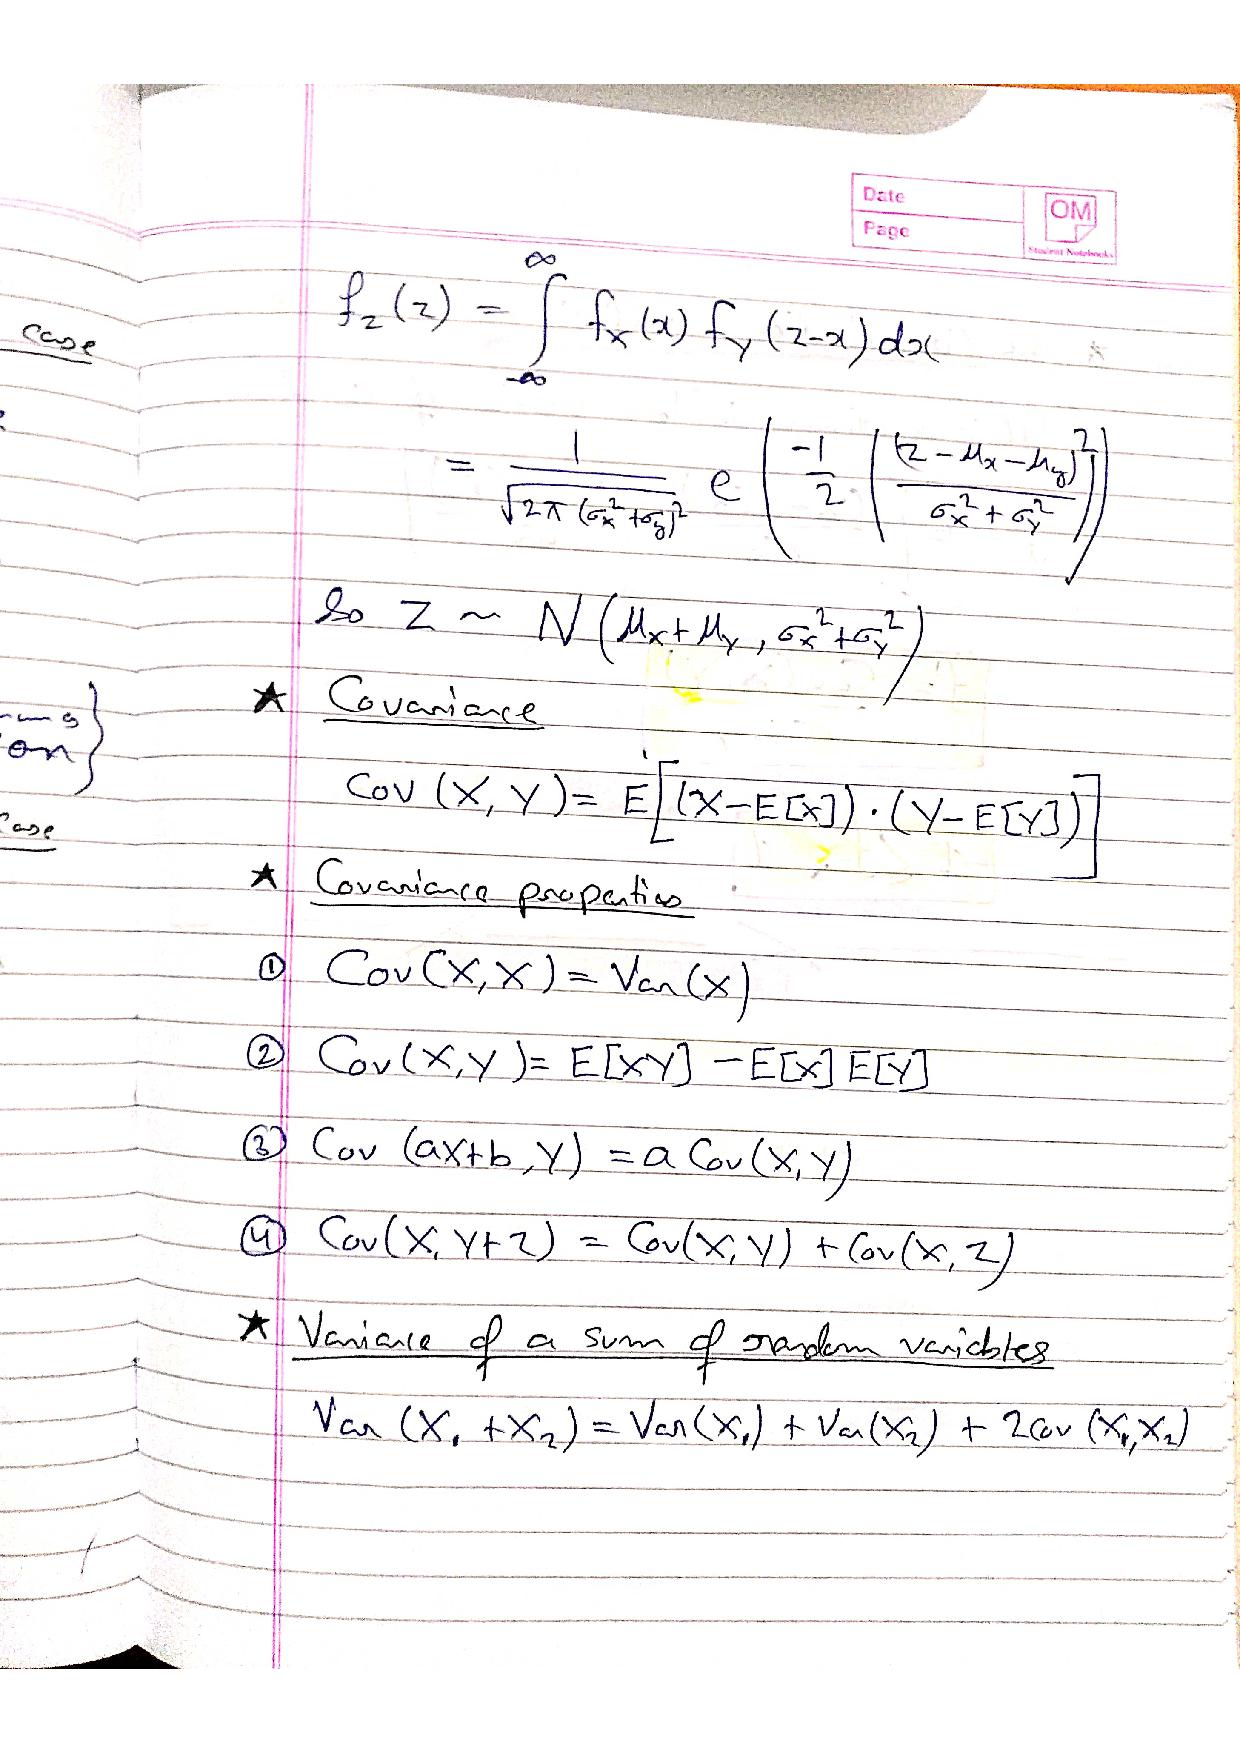 Date
OM
Page
Student Notebooks
f_z(z) = ∫_{-∞}^{∞} f_x(x) f_y(z-x)dx
case
= 1/√(2π(σ_x^2+σ_y)^2) e(-1/2 ((z-μ_x-μ_y)^2/(σ_x^2+σ_y^2)))
So Z ~ N(μ_x+μ_y, σ_x^2+σ_y^2)
★ Covariance
Cov (X, Y) = E[(X-E[X])·(Y-E[Y])]
case
★ Covariance properties
① Cov(X,X) = Var(X)
② Cov(X,Y) = E[XY] - E[X] E[Y]
③ Cov (aX+b, Y) = a Cov(X,Y)
④ Cov(X, Y+Z) = Cov(X,Y) + Cov(X,Z)
★ Variance of a sum of random variables
Var (X₁ +X₂) = Var(X₁) + Var(X₂) + 2Cov (X₁,X₂)